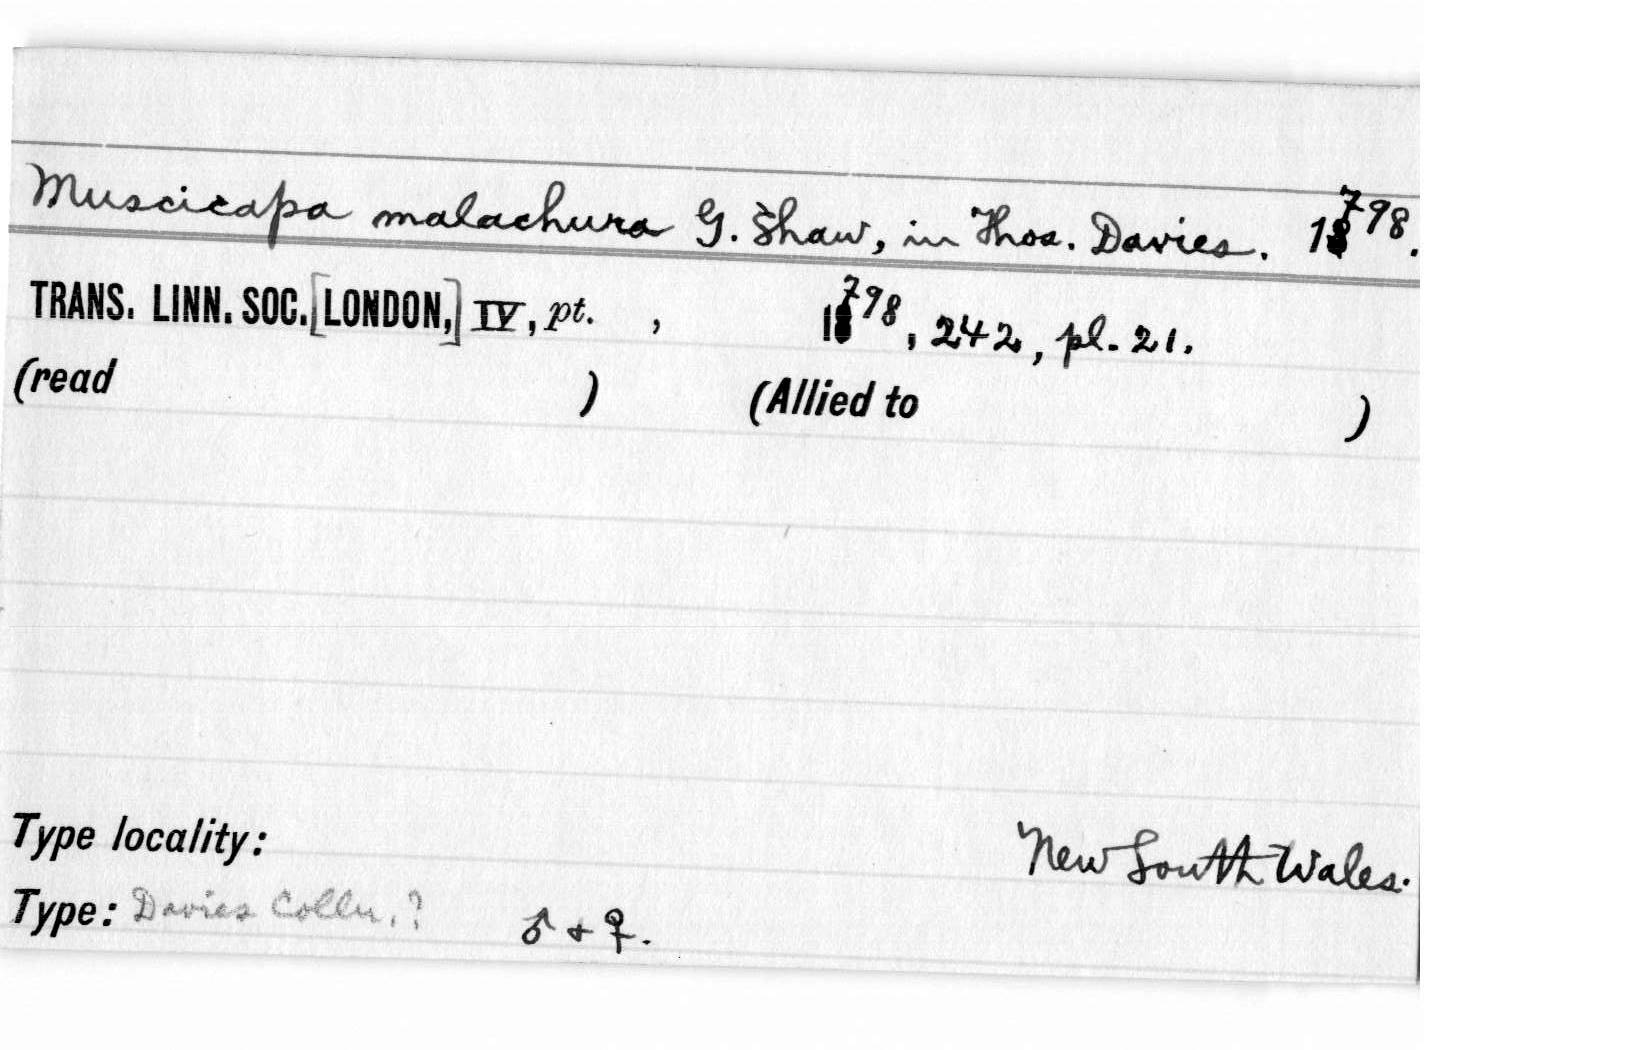 Muscicapa malachura G. Shaw, in Thos. Davies. 1798.
TRANS. LINN. SOC. [LONDON,] IV, pt. , 1798, 242, pl. 21.
(read ) (Allied to )
Type locality: New South Wales.
Type: Davies Colln.? ♂ + ♀.